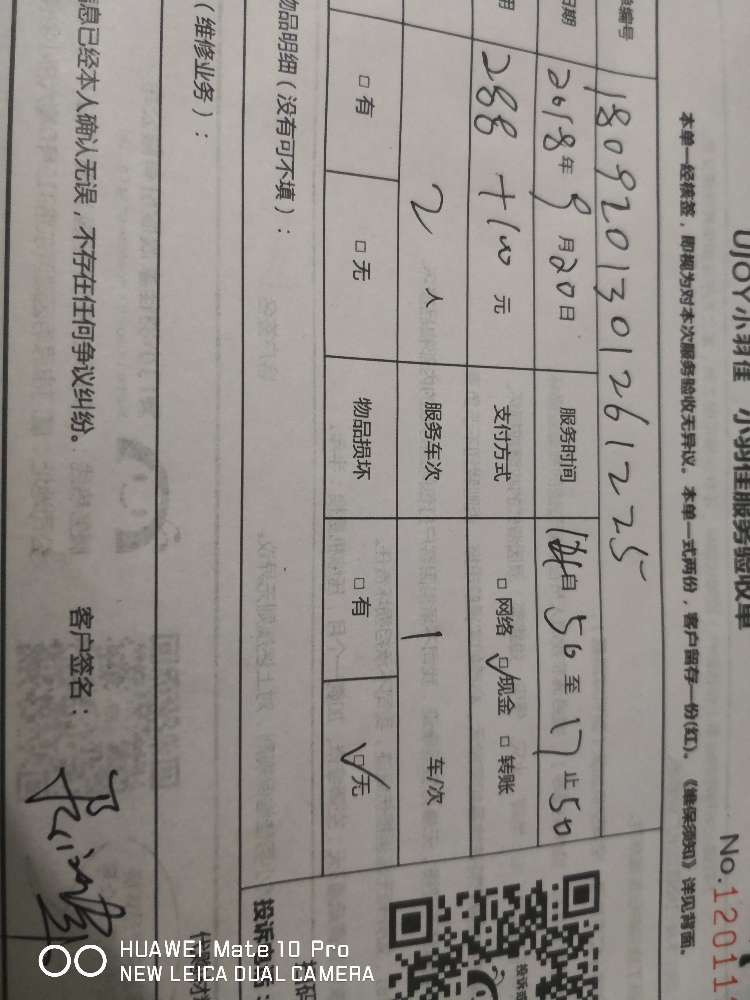 UJOY小羽佳 小羽佳服务验收单
No.12011
本单一经核签，即视为对本次服务验收无异议。本单一式两份，客户留存一份(红)。《维保须知》详见背面。
编号 1809201301261225
日期 2018年9月20日 服务时间 自 50 至 17 止 50
用 288+100元 支付方式 □网络 ☑现金 □转账
2人 服务车次 1 车/次
□有 □无 物品损坏 □有 ☑无
物品明细（没有可不填）：
（维修业务）：
投诉
息已经本人确认无误，不存在任何争议纠纷。 客户签名：
HUAWEI Mate 10 Pro
NEW LEICA DUAL CAMERA